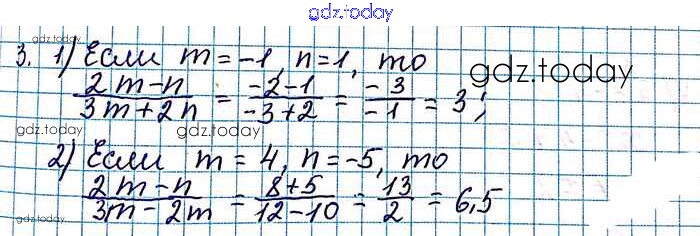 gdz.today
gdz.today
3. 1) Если m = -1, n = 1, то
gdz.today
(2m-n)/(3m+2n) = (-2-1)/(-3+2) = (-3)/(-1) = 3;
gdz.today gdz.today
2) Если m = 4, n = -5, то
(2m-n)/(3m-2m) = (8+5)/(12-10) = 13/2 = 6,5
gdz.today gdz.today